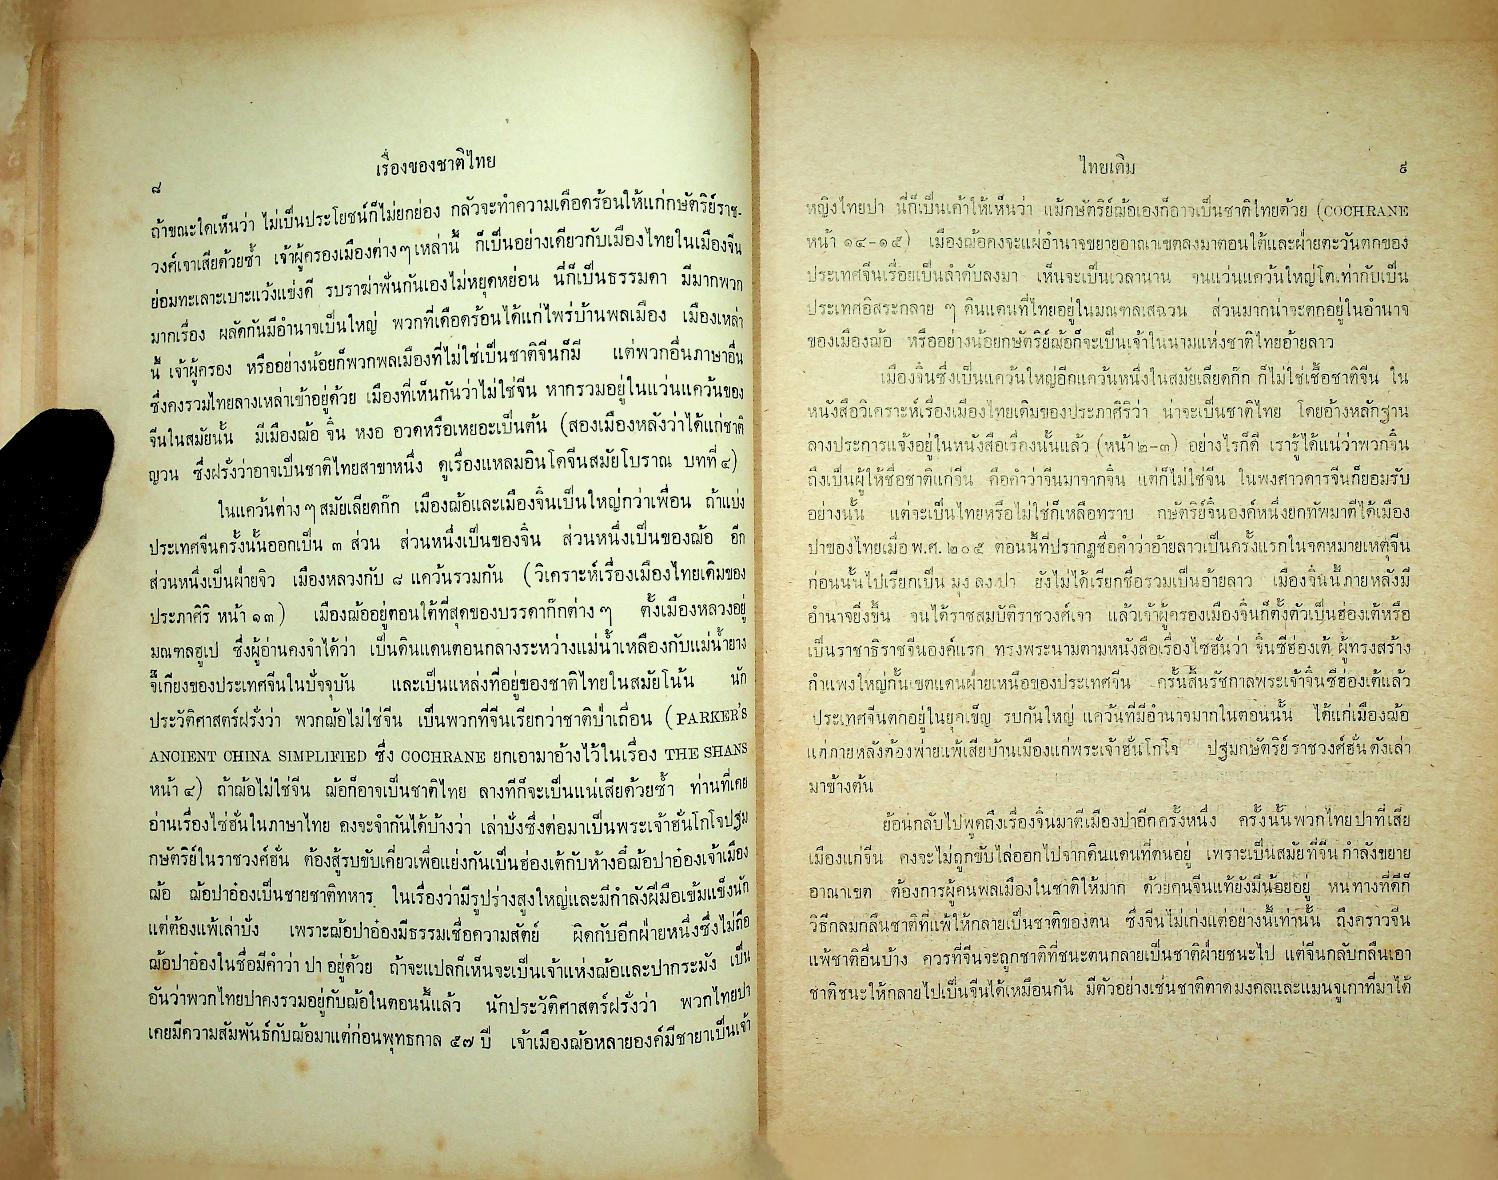 เรื่องของชาติไทย
๘
ถ้าขณะใดเห็นว่า ไม่เป็นประโยชน์ก็ไม่ยกย่อง กลัวจะทำความเดือดร้อนให้แก่กษัตริย์ราช-
วงศ์เจาเสียด้วยซ้ำ เจ้าผู้ครองเมืองต่างๆ เหล่านี้ ก็เป็นอย่างเดียวกับเมืองไทยในเมืองจีน
ย่อมทะเลาะเบาะแว้งแข่งดี รบราฆ่าฟันกันเองไม่หยุดหย่อน นี่ก็เป็นธรรมดา มีมากพวก
มากเรื่อง ผลัดกันมีอำนาจเป็นใหญ่ พวกที่เดือดร้อนได้แก่ไพร่บ้านพลเมือง เมืองเหล่า
นี้ เจ้าผู้ครอง หรืออย่างน้อยก็พวกพลเมืองที่ไม่ใช่เป็นชาติจีนก็มี แต่พวกอื่นภาษาอื่น
ซึ่งคงรวมไทยลางเหล่าเข้าอยู่ด้วย เมืองที่เห็นกันว่าไม่ใช่จีน หากรวมอยู่ในแว่นแคว้นของ
จีนในสมัยนั้น มีเมืองฌ้อ จิ๋น หงอ อวดหรือเหยอะเป็นต้น (สองเมืองหลังว่าได้แก่ชาติ
ญวน ซึ่งฝรั่งว่าอาจเป็นชาติไทยสาขาหนึ่ง ดูเรื่องแหลมอินโดจีนสมัยโบราณ บทที่ ๔)
ในแคว้นต่าง ๆ สมัยเลียดก๊ก เมืองฌ้อและเมืองจิ๋นเป็นใหญ่กว่าเพื่อน ถ้าแบ่ง
ประเทศจีนครั้งนั้นออกเป็น ๓ ส่วน ส่วนหนึ่งเป็นของจิ๋น ส่วนหนึ่งเป็นของฌ้อ อีก
ส่วนหนึ่งเป็นฝ่ายจิว เมืองหลวงกับ ๘ แคว้นรวมกัน (วิเคราะห์เรื่องเมืองไทยเดิมของ
ประภาศิริ หน้า ๑๓) เมืองฌ้ออยู่ตอนใต้ที่สุดของบรรดาก๊กต่าง ๆ ตั้งเมืองหลวงอยู่
มณฑลฮูเป ซึ่งผู้อ่านคงจำได้ว่า เป็นดินแดนตอนกลางระหว่างแม่น้ำเหลืองกับแม่น้ำยาง
จื๊เกียงของประเทศจีนในปัจจุบัน และเป็นแหล่งที่อยู่ของชาติไทยในสมัยโน้น นัก
ประวัติศาสตร์ฝรั่งว่า พวกฌ้อไม่ใช่จีน เป็นพวกที่จีนเรียกว่าชาติป่าเถื่อน (PARKER'S
ANCIENT CHINA SIMPLIFIED ซึ่ง COCHRANE ยกเอามาอ้างไว้ในเรื่อง THE SHANS
หน้า ๔) ถ้าฌ้อไม่ใช่จีน ฌ้อก็อาจเป็นชาติไทย ลางทีก็จะเป็นแน่เสียด้วยซ้ำ ท่านที่เคย
อ่านเรื่องไซ่ฮั่นในภาษาไทย คงจะจำกันได้บ้างว่า เล่าปั่งซึ่งต่อมาเป็นพระเจ้าฮั่นโกโจปฐม
กษัตริย์ในราชวงศ์ฮั่น ต้องสู้รบขับเคี่ยวเพื่อแย่งกันเป็นฮ่องเต้กับห้างอี๋ฌ้อปาอ๋องเจ้าเมือง
ฌ้อ ฌ้อปาอ๋องเป็นชายชาติทหาร ในเรื่องว่ามีรูปร่างสูงใหญ่และมีกำลังฝีมือเข้มแข็งนัก
แต่ต้องแพ้เล่าปั่ง เพราะฌ้อปาอ๋องมีธรรมเชื่อความสัตย์ ผิดกับอีกฝ่ายหนึ่งซึ่งไม่ถือ
ฌ้อปาอ๋องในชื่อมีคำว่า ปา อยู่ด้วย ถ้าจะแปลก็เห็นจะเป็นเจ้าแห่งฌ้อและปากระมัง เป็น
อันว่าพวกไทยปาคงรวมอยู่กับฌ้อในตอนนี้แล้ว นักประวัติศาสตร์ฝรั่งว่า พวกไทยปา
เคยมีความสัมพันธ์กับฌ้อมาแต่ก่อนพุทธกาล ๕๗ ปี เจ้าเมืองฌ้อหลายองค์มีชายาเป็นเจ้า
ไทยเดิม
๙
หญิงไทยปา นี่ก็เป็นเค้าให้เห็นว่า แม้กษัตริย์ฌ้อเองก็อาจเป็นชาติไทยด้วย (COCHRANE
หน้า ๑๔-๑๕) เมืองฌ้อคงจะแผ่อำนาจขยายอาณาเขตลงมาตอนใต้และฝ่ายตะวันตกของ
ประเทศจีนเรื่อยเป็นลำดับลงมา เห็นจะเป็นเวลานาน จนแว่นแคว้นใหญ่โตเท่ากับเป็น
ประเทศอิสระกลาย ๆ ดินแดนที่ไทยอยู่ในมณฑลเสฉวน ส่วนมากน่าจะตกอยู่ในอำนาจ
ของเมืองฌ้อ หรืออย่างน้อยกษัตริย์ฌ้อก็จะเป็นเจ้าในนามแห่งชาติไทยอ้ายลาว
เมืองจิ๋นซึ่งเป็นแคว้นใหญ่อีกแคว้นหนึ่งในสมัยเลียดก๊ก ก็ไม่ใช่เชื้อชาติจีน ใน
หนังสือวิเคราะห์เรื่องเมืองไทยเดิมของประภาศิริว่า น่าจะเป็นชาติไทย โดยอ้างหลักฐาน
ลางประการแจ้งอยู่ในหนังสือเรื่องนั้นแล้ว (หน้า ๒-๓) อย่างไรก็ดี เรารู้ได้แน่ว่าพวกจิ๋น
ถึงเป็นผู้ให้ชื่อชาติแก่จีน คือคำว่าจีนมาจากจิ๋น แต่ก็ไม่ใช่จีน ในพงศาวดารจีนก็ยอมรับ
อย่างนั้น แต่จะเป็นไทยหรือไม่ใช่ก็เหลือทราบ กษัตริย์จิ๋นองค์หนึ่งยกทัพมาตีได้เมือง
ปาของไทยเมื่อ พ.ศ. ๒๐๕ ตอนนี้ที่ปรากฏชื่อคำว่าอ้ายลาวเป็นครั้งแรกในจดหมายเหตุจีน
ก่อนนั้นไปเรียกเป็น มุง ลง ปา ยังไม่ได้เรียกชื่อรวมเป็นอ้ายลาว เมืองจิ๋นนี้ภายหลังมี
อำนาจยิ่งขึ้น จนได้ราชสมบัติราชวงศ์เจา แล้วเจ้าผู้ครองเมืองจิ๋นก็ตั้งตัวเป็นฮ่องเต้หรือ
เป็นราชาธิราชจีนองค์แรก ทรงพระนามตามหนังสือเรื่องไซ่ฮั่นว่า จิ๋นซีฮ่องเต้ ผู้ทรงสร้าง
กำแพงใหญ่กั้นเขตแดนฝ่ายเหนือของประเทศจีน ครั้นสิ้นรัชกาลพระเจ้าจิ๋นซีฮ่องเต้แล้ว
ประเทศจีนตกอยู่ในยุคเข็ญ รบกันใหญ่ แคว้นที่มีอำนาจมากในตอนนั้น ได้แก่เมืองฌ้อ
แต่ภายหลังต้องพ่ายแพ้เสียบ้านเมืองแก่พระเจ้าฮั่นโกโจ ปฐมกษัตริย์ราชวงศ์ฮั่น ดังเล่า
มาข้างต้น
ย้อนกลับไปพูดถึงเรื่องจิ๋นมาตีเมืองปาอีกครั้งหนึ่ง ครั้งนั้นพวกไทยปาที่เสีย
เมืองแก่จีน คงจะไม่ถูกขับไล่ออกไปจากดินแดนที่ตนอยู่ เพราะเป็นสมัยที่จีนกำลังขยาย
อาณาเขต ต้องการผู้คนพลเมืองในชาติให้มาก ด้วยคนจีนแท้ยังมีน้อยอยู่ หนทางที่ดีก็
วิธีกลมกลืนชาติที่แพ้ให้กลายเป็นชาติของตน ซึ่งจีนไม่เก่งแต่อย่างนี้เท่านั้น ถึงคราวจีน
แพ้ชาติอื่นบ้าง ควรที่จีนจะถูกชาติที่ชนะตนกลายเป็นชาติฝ่ายชนะไป แต่จีนกลับกลืนเอา
ชาติชนะให้กลายไปเป็นจีนได้เหมือนกัน มีตัวอย่างเช่นชาติตาดมงคลและแมนจูเกาที่มาได้